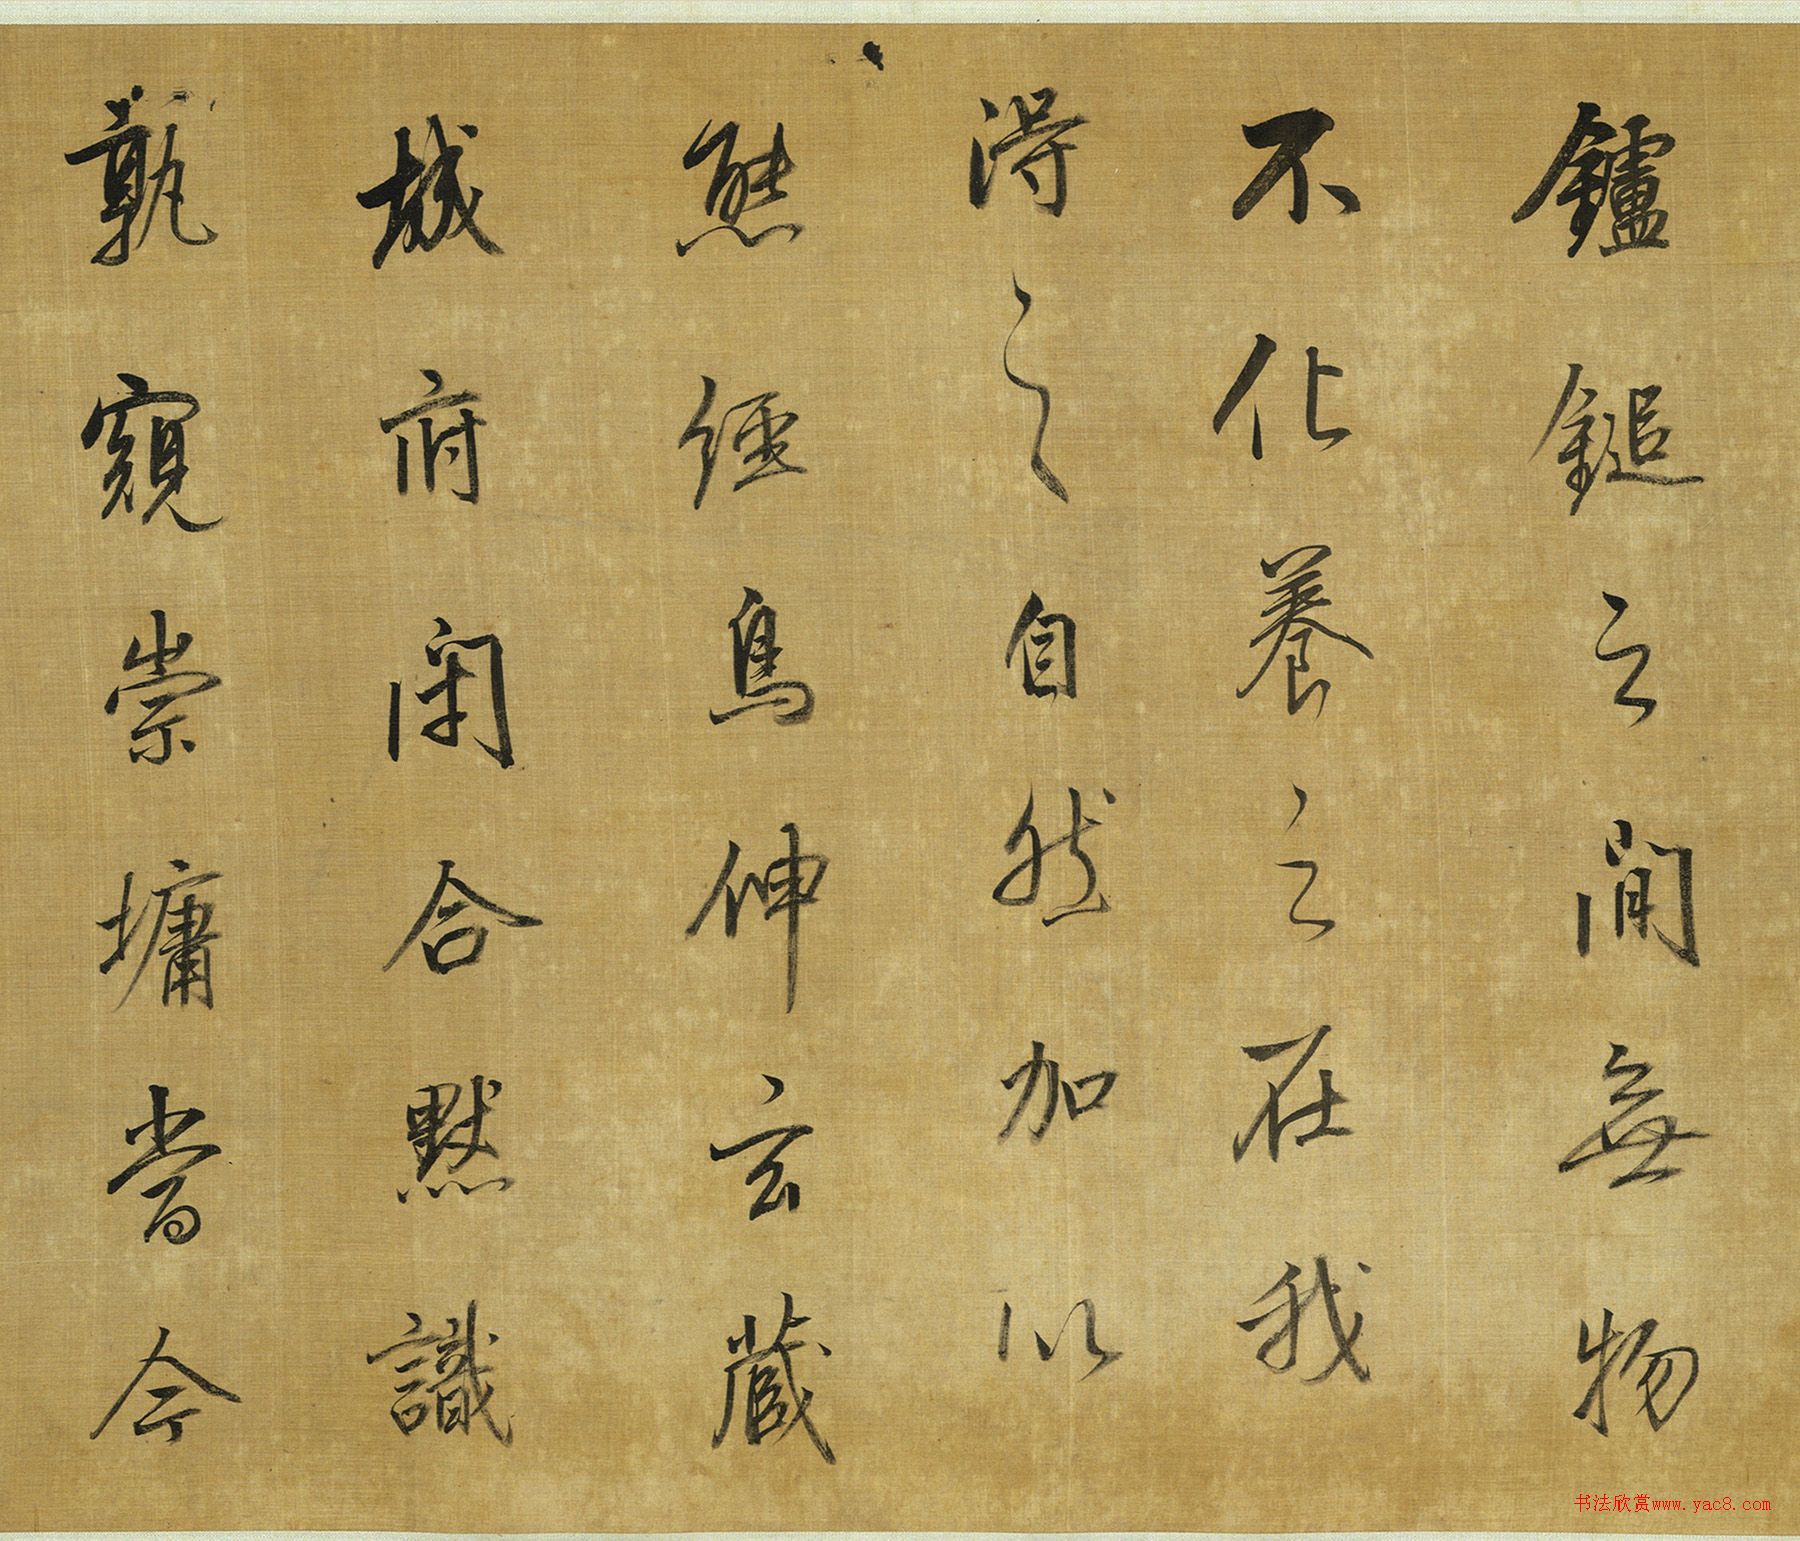 鑪鎚之間無物
不化養之在我
得之自然加以
熊經鳥伸玄藏
城府閉合默識
孰窺崇墉嘗令
书法欣赏www.yac8.com